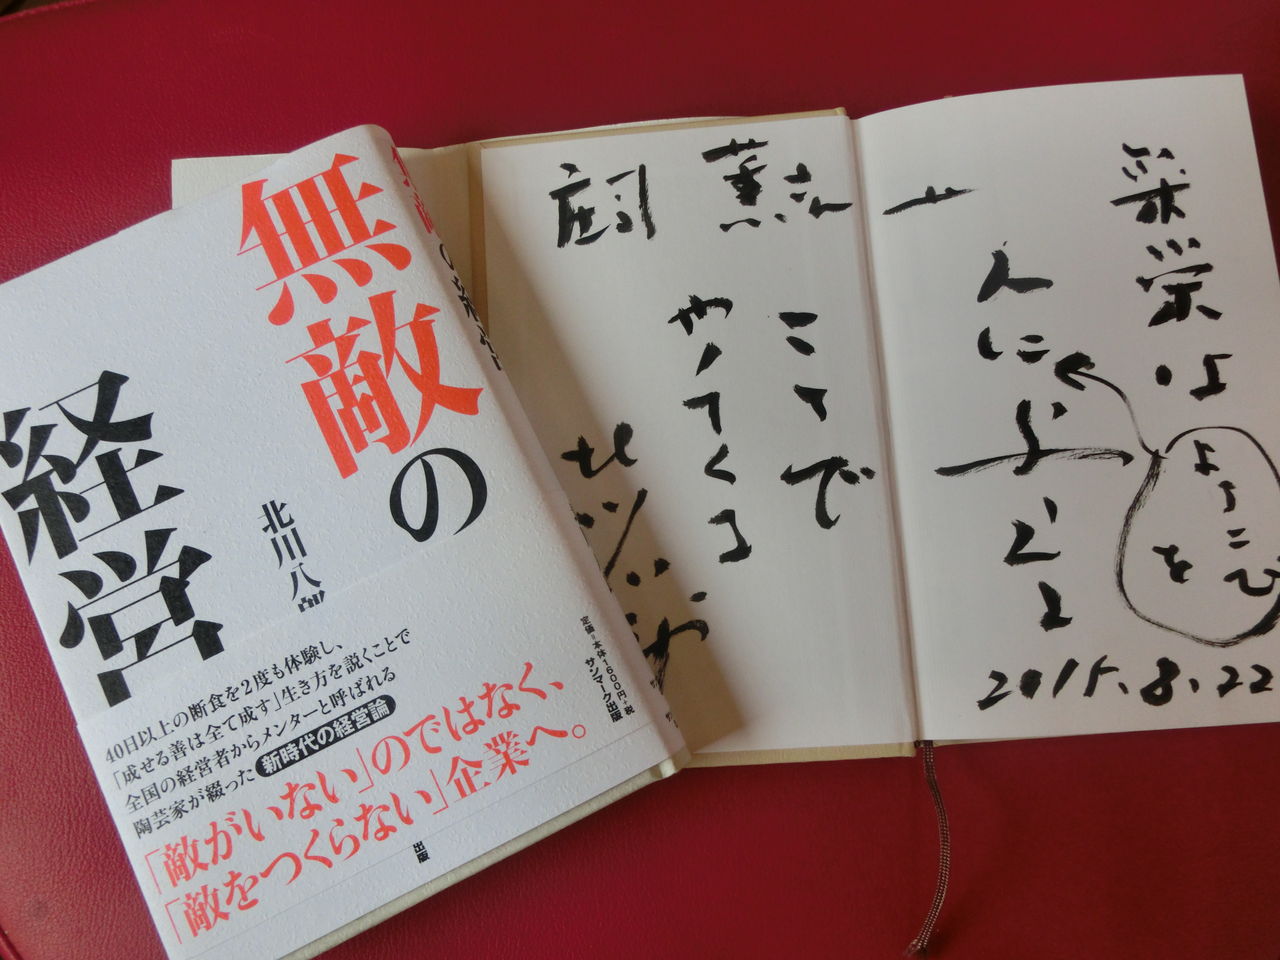 無敵の
経営
北川八郎
40日以上の断食を2度も体験し、
「成せる善は全て成す」生き方を説くことで
全国の経営者からメンターと呼ばれる
陶芸家が綴った新時代の経営論
「敵がいない」のではなく、
「敵をつくらない」企業へ。
定価=本体1600円+税
サンマーク出版
出版
繁栄は
よろこびを
人に
2015.8.22
薫さん
こって
やってくる
北川八郎